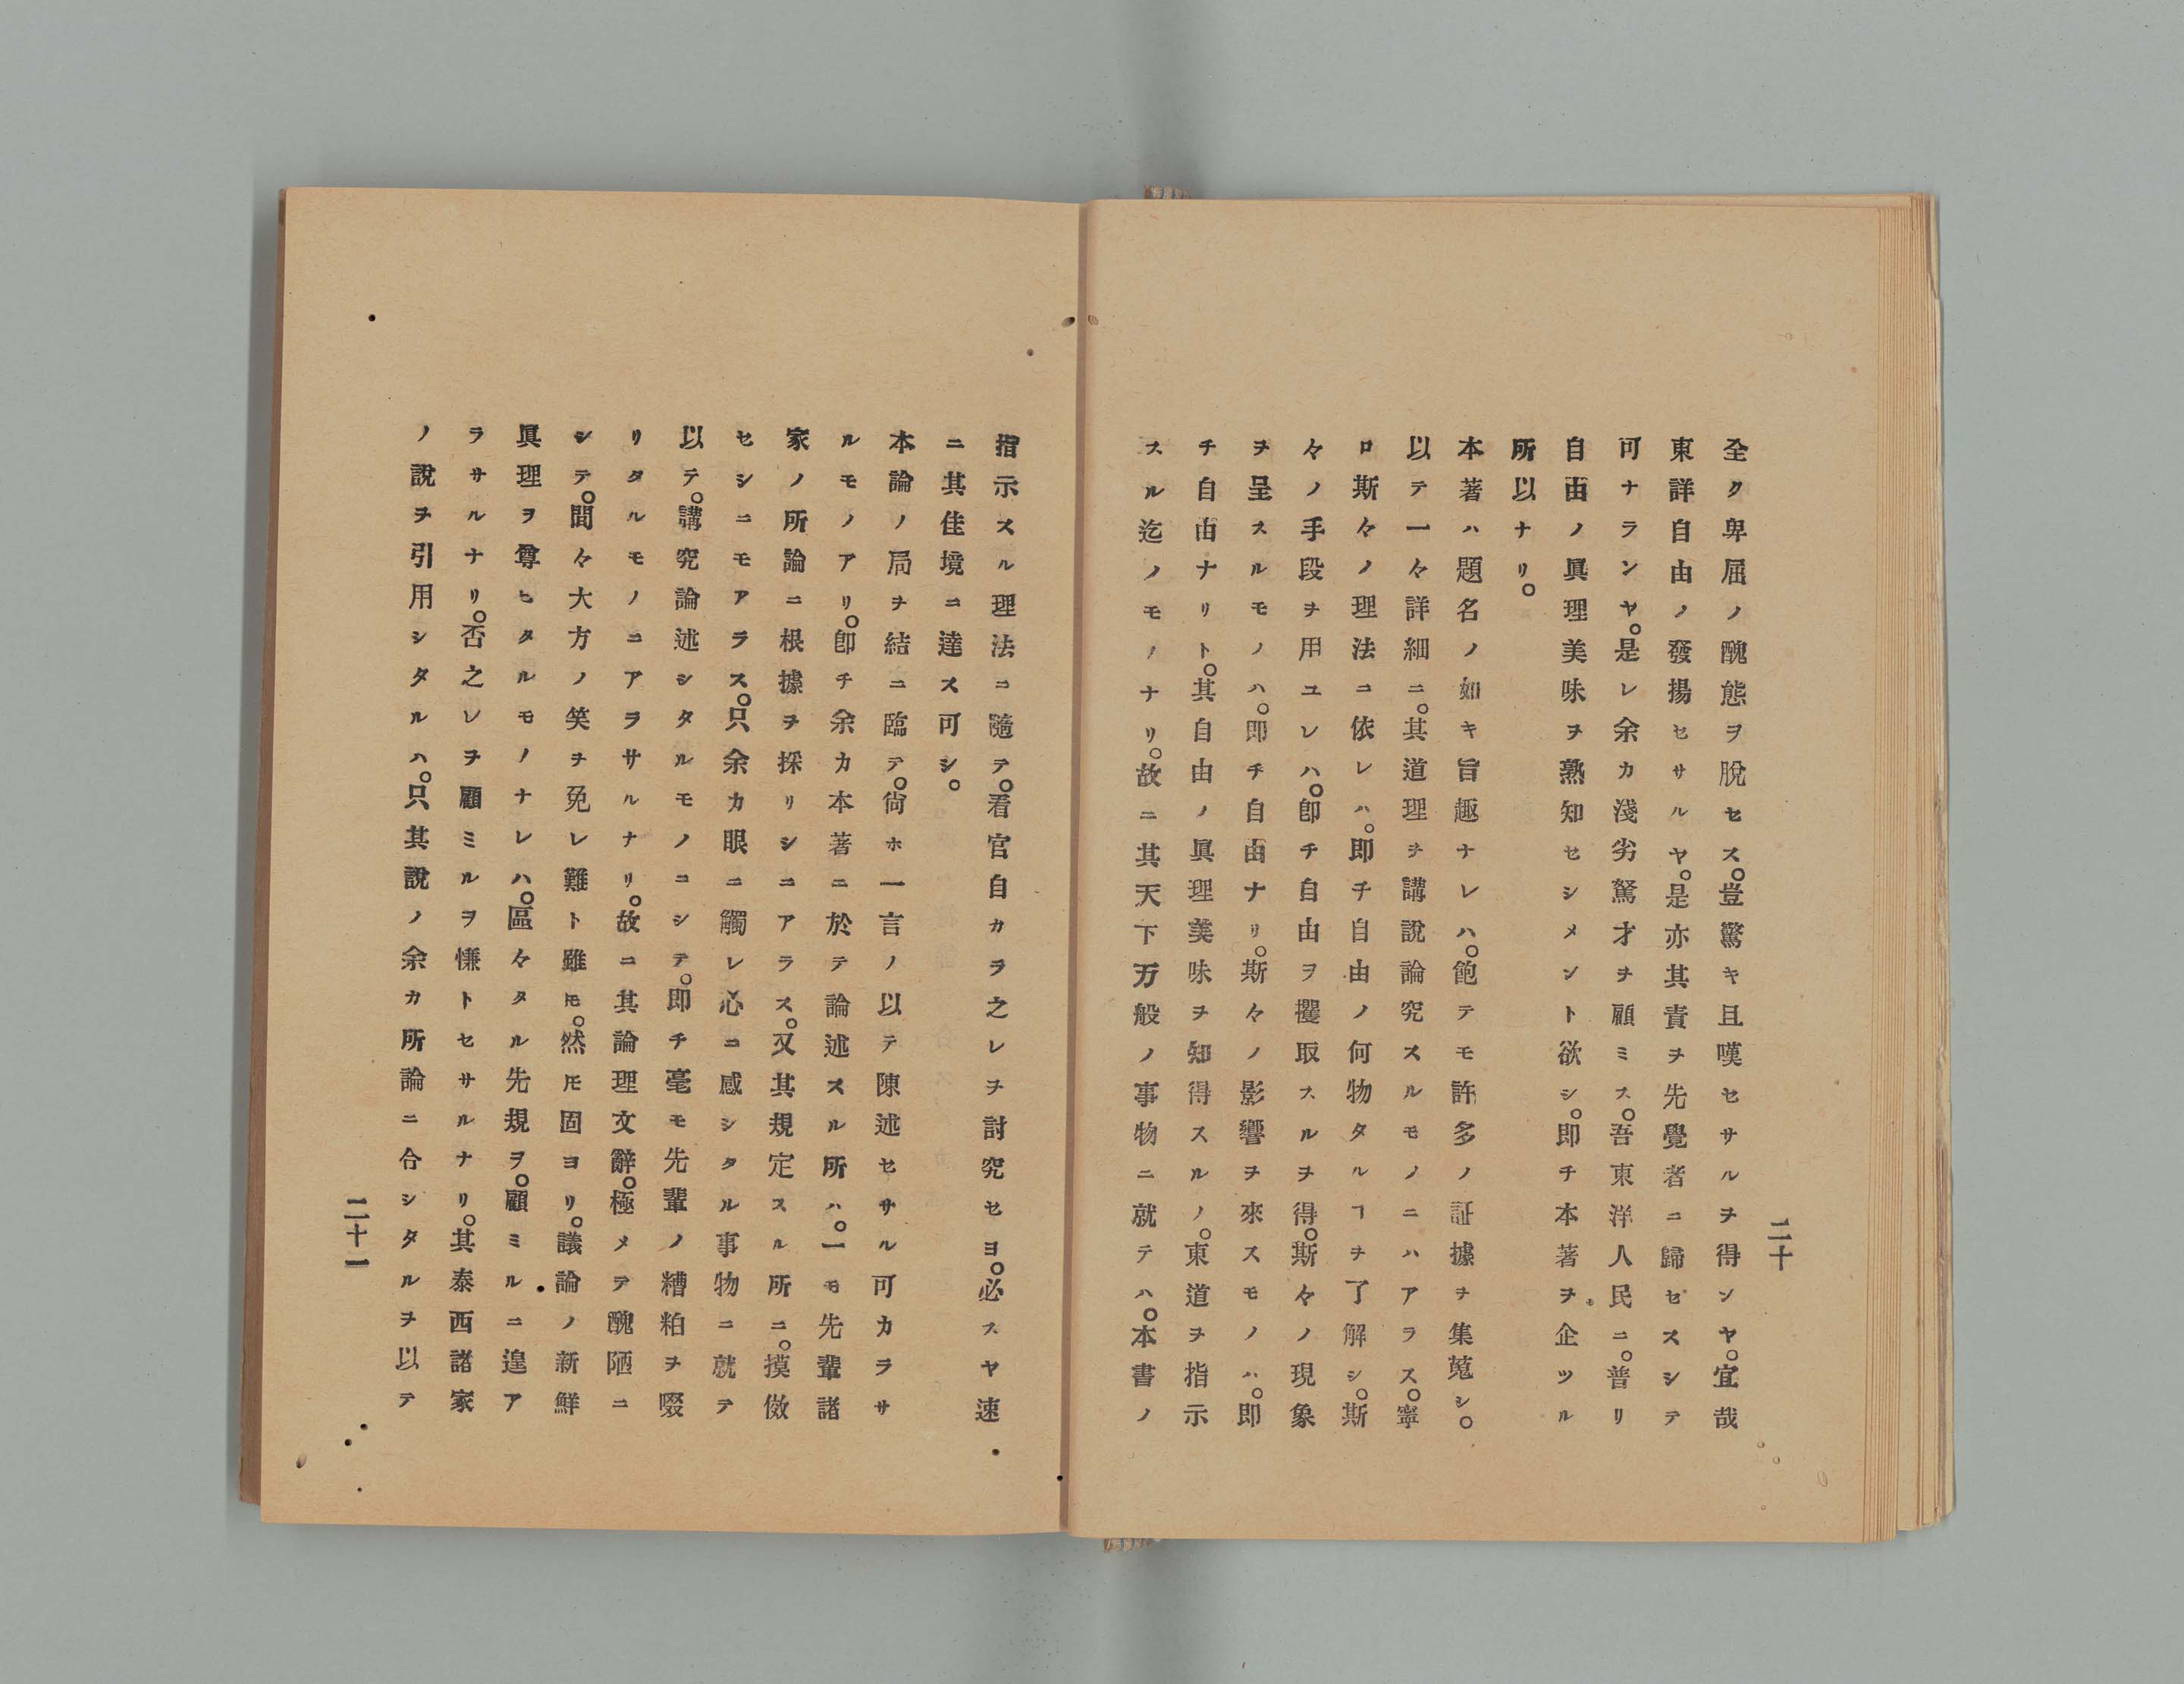 二十
全ク卑屈ノ醜態ヲ脫セス。豈驚キ且嘆セサルヲ得ンヤ。宜哉
東詳自由ノ發揚セサルヤ。是亦其責ヲ先覺者ニ歸セスシテ
可ナランヤ。是レ余カ淺劣駑才ヲ顧ミス。吾東洋人民ニ。普リ
自由ノ眞理美味ヲ熟知セシメント欲シ。即チ本著ヲ企ツル
所以ナリ。
本著ハ題名ノ如キ旨趣ナレハ。飽テモ許多ノ証據ヲ集蒐シ。
以テ一々詳細ニ。其道理ヲ講說論究スルモノニハアラス。寧
ロ斯々ノ理法ニ依レハ。即チ自由ノ何物タルヿヲ了解シ。斯
々ノ手段ヲ用ユレハ。即チ自由ヲ攫取スルヲ得。斯々ノ現象
ヲ呈スルモノハ。即チ自由ナリ。斯々ノ影響ヲ來スモノハ。即
チ自由ナリト。其自由ノ眞理美味ヲ知得スルノ。東道ヲ指示
スル迄ノモノナリ。故ニ其天下万般ノ事物ニ就テハ。本書ノ
指示スル理法ニ隨テ。看官自カラ之レヲ討究セヨ。必スヤ速
ニ其佳境ニ達ス可シ。
本論ノ局ヲ結ニ臨テ。尙ホ一言ノ以テ陳述セサル可カラサ
ルモノアリ。卽チ余カ本著ニ於テ論述スル所ハ。一モ先輩諸
家ノ所論ニ根據ヲ採リシニアラス。又其規定スル所ニ。摸倣
セシニモアラス。只余カ眼ニ觸レ心ニ感シタル事物ニ就テ
以テ。講究論述シタルモノニシテ。即チ毫モ先輩ノ糟粕ヲ啜
リタルモノニアラサルナリ。故ニ其論理文辭。極メテ醜陋ニ
シテ。間々大方ノ笑ヲ免レ難ト雖𪜈。然𪜈固ヨリ。議論ノ新鮮
眞理ヲ尊ヒタルモノナレハ。區々タル先規ヲ。顧ミルニ遑ア
ラサルナリ。否之レヲ顧ミルヲ慊トセサルナリ。其泰西諸家
ノ說ヲ引用シタルハ。只其說ノ余カ所論ニ合シタルヲ以テ
二十一